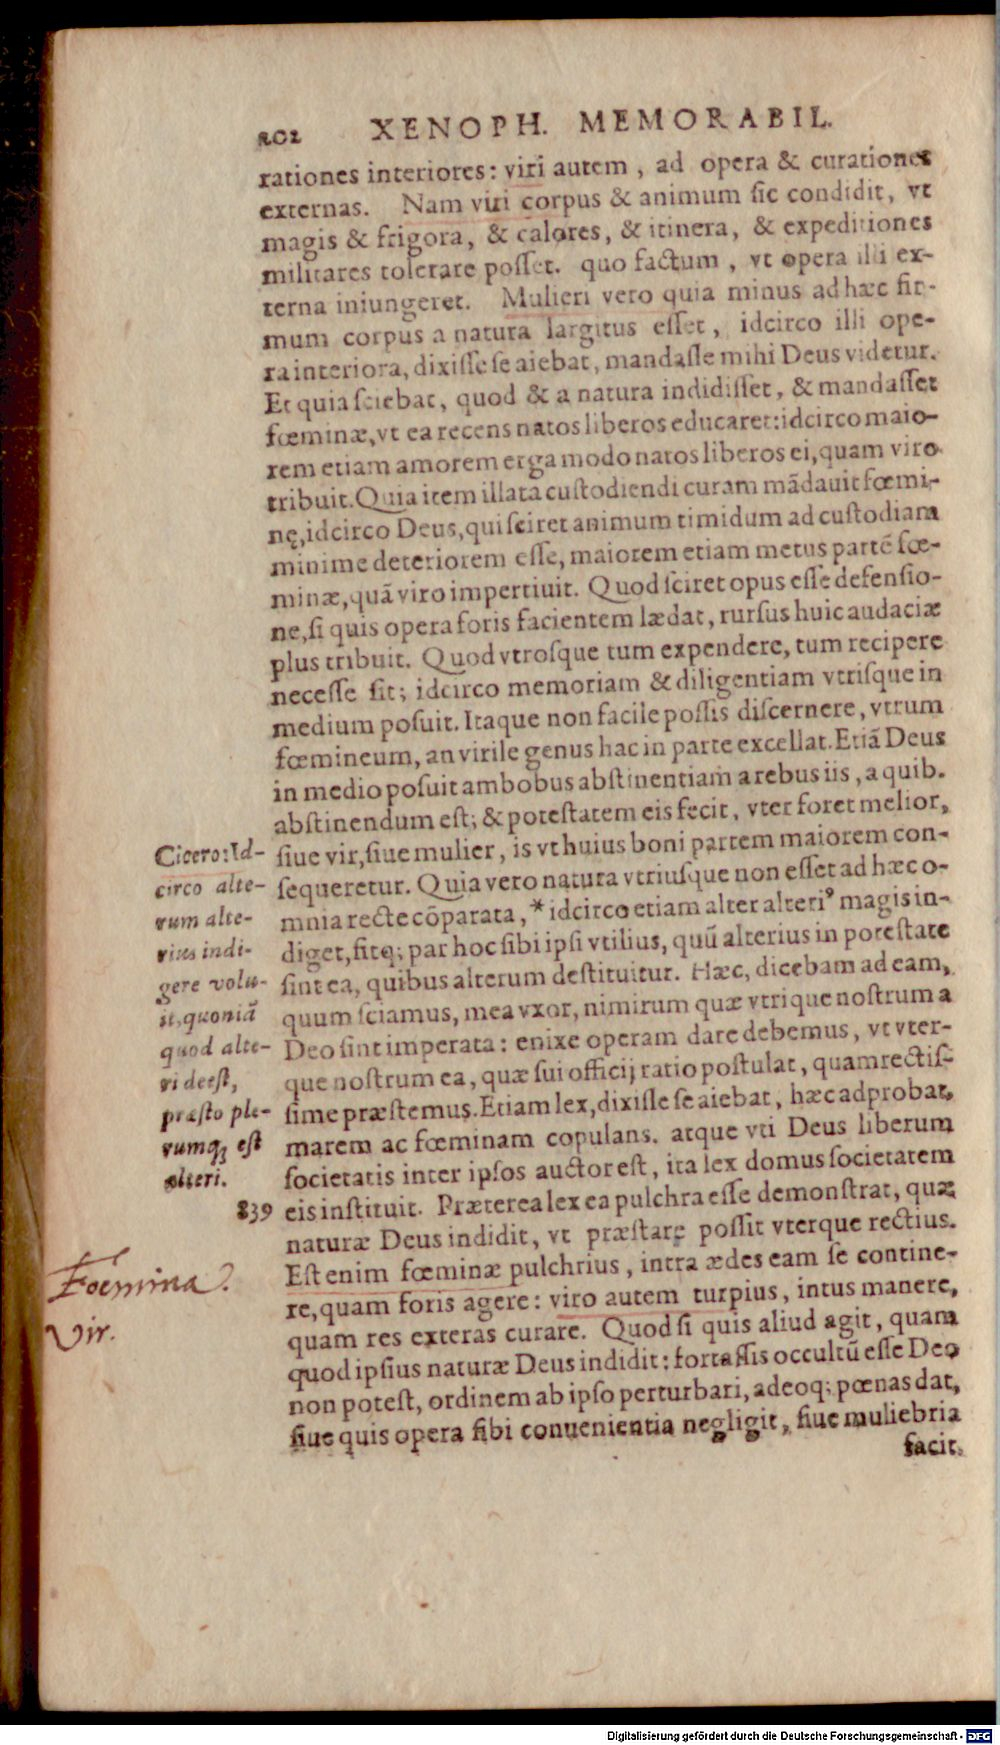 202 XENOPH. MEMORABIL.
rationes interiores: viri autem, ad opera & curationes
externas. Nam viri corpus & animum sic condidit, vt
magis & frigora, & calores, & itinera, & expeditiones
militares tolerare posset. quo factum, vt opera illi ex-
terna iniungeret. Mulieri vero quia minus ad hæc fir-
mum corpus a natura largitus esset, idcirco illi ope-
ra interiora, dixisse se aiebat, mandasse mihi Deus videtur.
Et quia sciebat, quod & a natura indidisset, & mandasset
fœminæ, vt ea recens natos liberos educaret: idcirco maio-
rem etiam amorem erga modo natos liberos ei, quam viro
tribuit. Quia item illata custodiendi curam mādauit fœmi-
nę, idcirco Deus, qui sciret animum timidum ad custodiam
minime deteriorem esse, maiorem etiam metus partē fœ-
minæ, quā viro impertiuit. Quod sciret opus esse defensio-
ne, si quis opera foris facientem lædat, rursus huic audaciæ
plus tribuit. Quod vtrosque tum expendere, tum recipere
necesse sit; idcirco memoriam & diligentiam vtrisque in
medium posuit. Itaque non facile possis discernere, vtrum
fœmineum, an virile genus hac in parte excellat. Etiā Deus
in medio posuit ambobus abstinentiam a rebus iis, a quib.
abstinendum est; & potestatem eis fecit, vter foret melior,
siue vir, siue mulier, is vt huius boni partem maiorem con-
sequeretur. Quia vero natura vtriusque non esset ad hæc o-
mnia recte cōparata, * idcirco etiam alter alteri⁹ magis in-
diget, fitq; par hoc sibi ipsi vtilius, quū alterius in potestate
sint ea, quibus alterum destituitur. Hæc, dicebam ad eam,
quum sciamus, mea vxor, nimirum quæ vtrique nostrum a
Deo sint imperata: enixe operam dare debemus, vt vter-
que nostrum ea, quæ sui officij ratio postulat, quam rectis-
sime præstemus. Etiam lex, dixisse se aiebat, hæc adprobat,
marem ac fœminam copulans. atque vti Deus liberum
societatis inter ipsos auctor est, ita lex domus societatem
eis instituit. Præterea lex ea pulchra esse demonstrat, quæ
naturæ Deus indidit, vt præstare possit vterque rectius.
Est enim fœminæ pulchrius, intra ædes eam se contine-
re, quam foris agere: viro autem turpius, intus manere,
quam res exteras curare. Quod si quis aliud agit, quam
quod ipsius naturæ Deus indidit: fortassis occultū esse Deo
non potest, ordinem ab ipso perturbari, adeoq; pœnas dat,
siue quis opera sibi conuenientia negligit, siue muliebria
facit.
Cicero: Id-
circo alte-
rum alte-
rius indi-
gere volu-
it, quoniā
quod alte-
ri deest,
præsto ple-
rumq; est
alteri.
839
Foemina.
Vir.
Digitalisierung gefördert durch die Deutsche Forschungsgemeinschaft - DFG